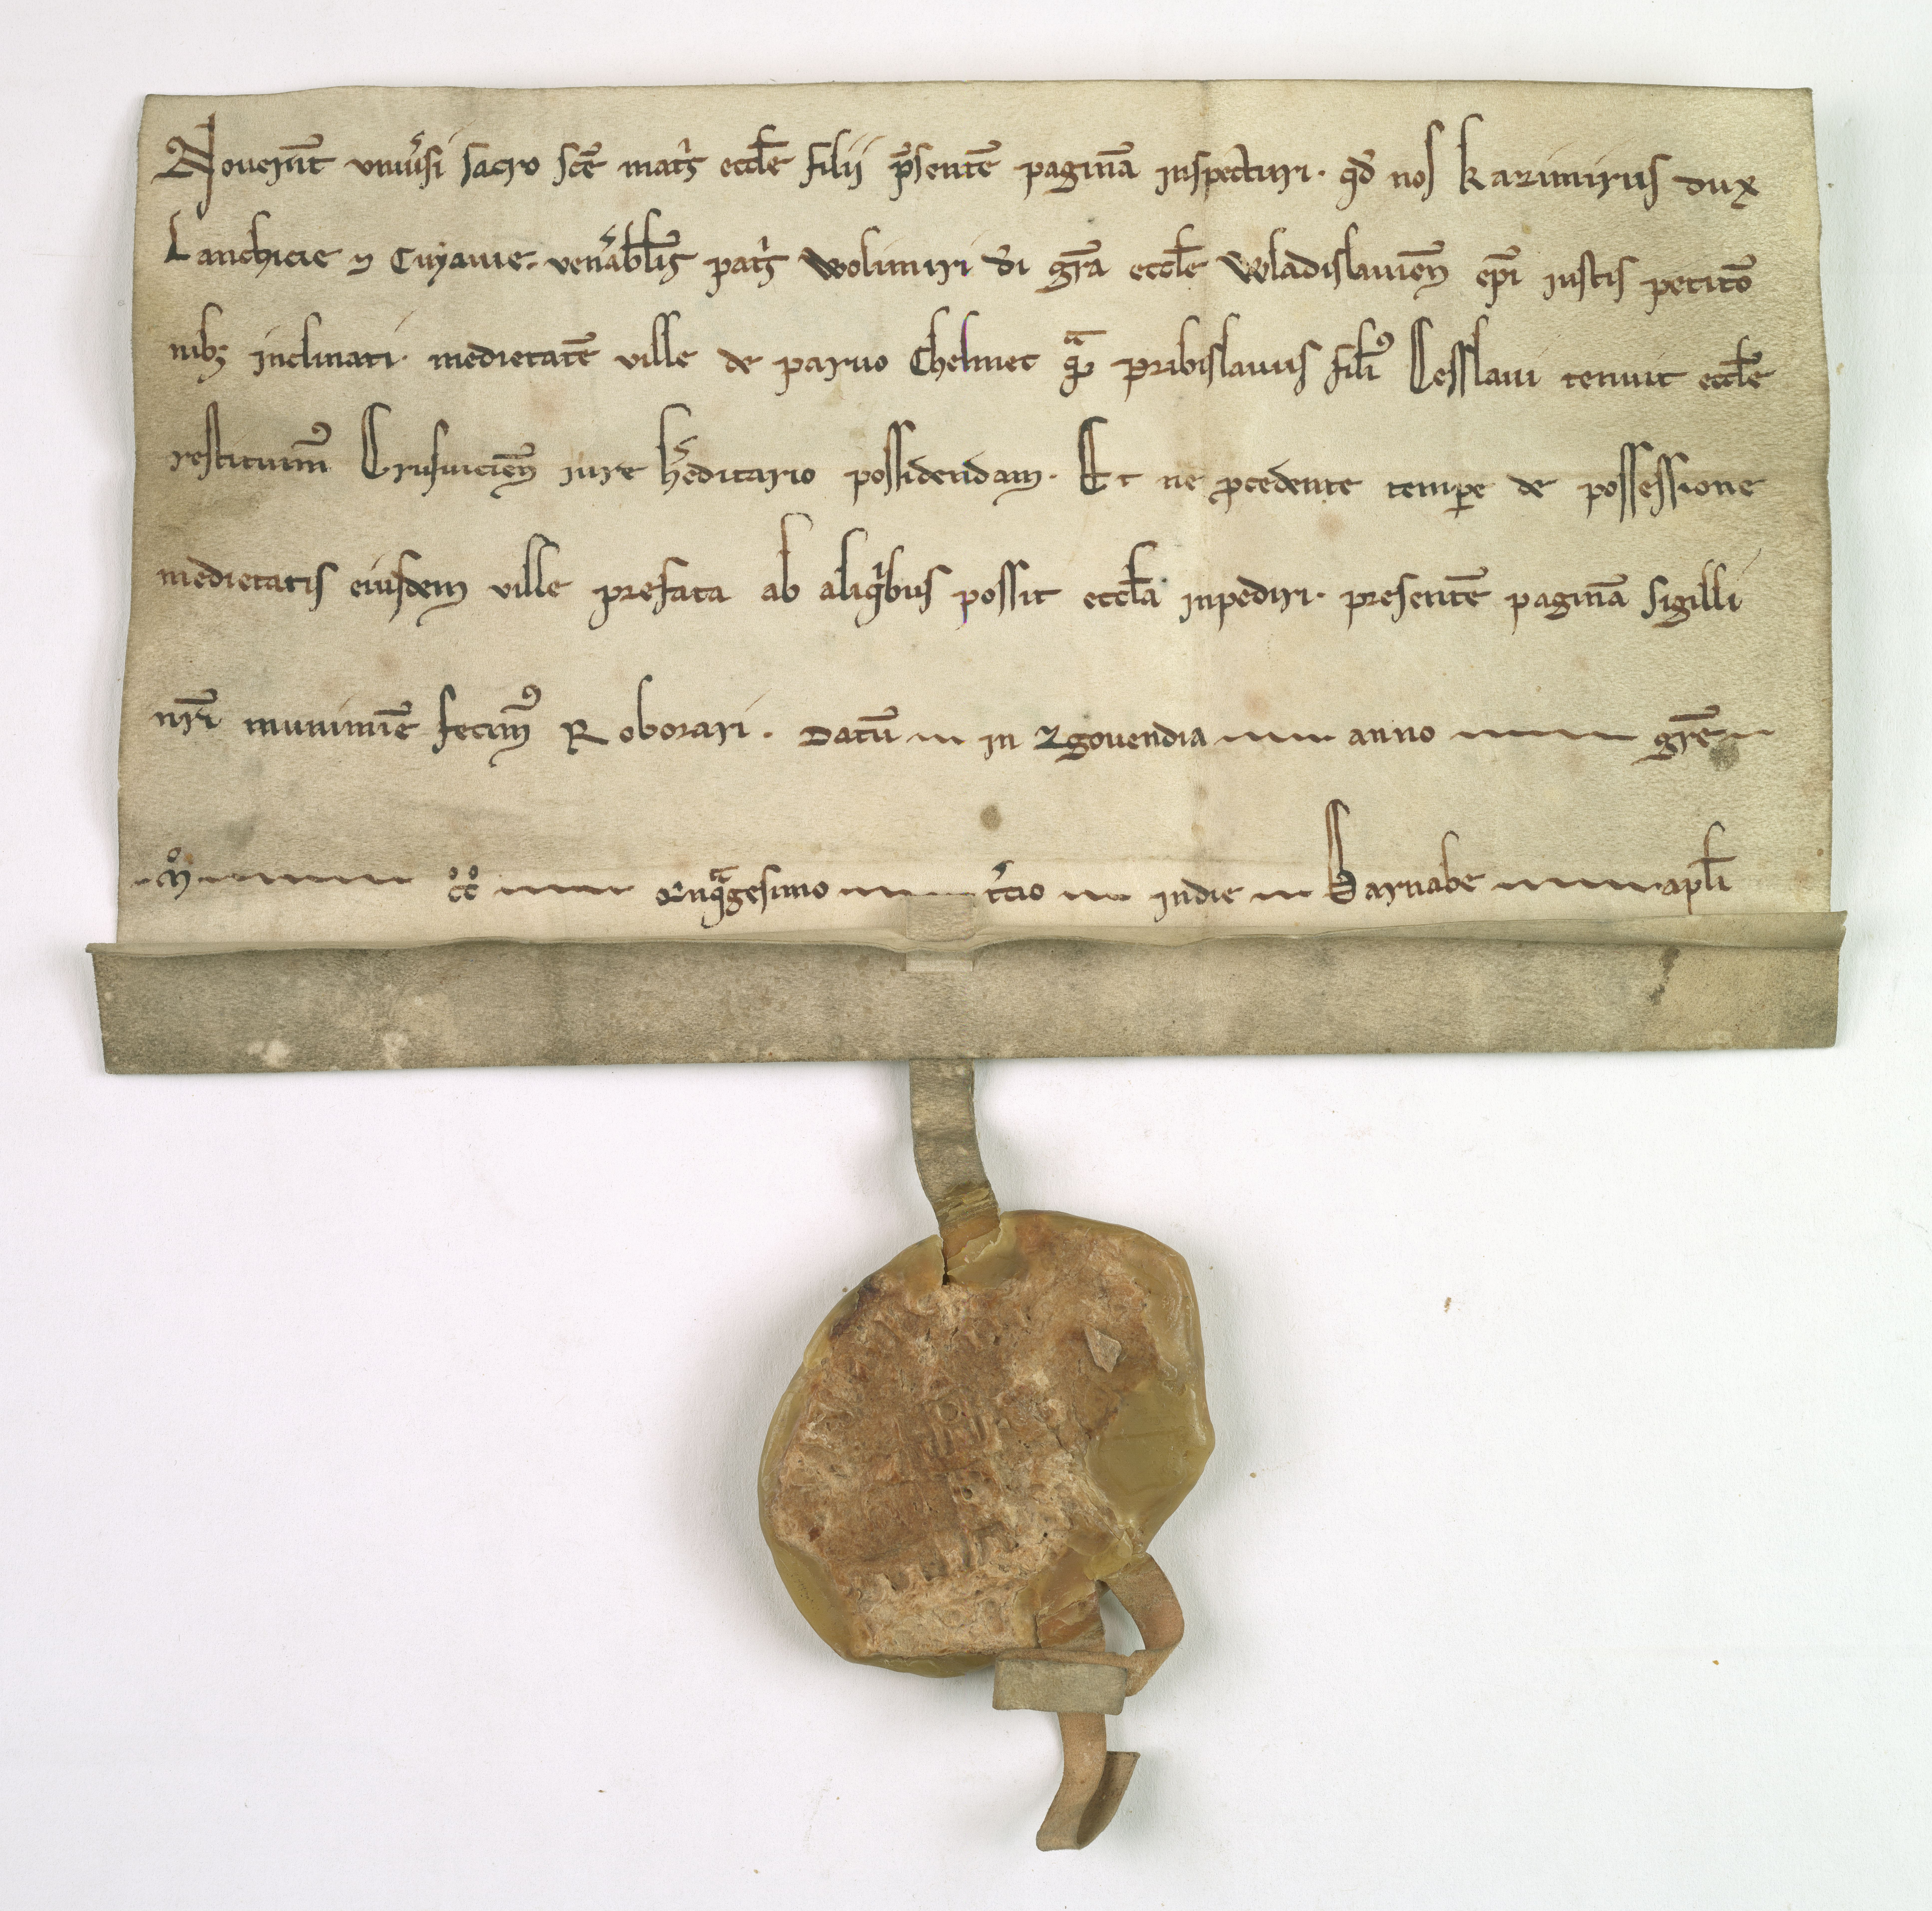 Nouerīt vniu̓si sacro scē mat͛s eccl̄e filii p̄sentē paginā inspecturi. qd̓ nos Kazimirus dux
Lanchicie ⁊ Cuyauie. ven̓abl̄is pat͛s Wolimiri d̄i gr̄a eccl̄e Wladislauieñ ep̄i iustis petitō
nib; inclinati. medietatē ville de paruo Chelmec qᵃ̄ pribislauus filiꝰ Cesslaui tenuit eccl̄e
restituimꝰ Crusuicieñ iure h̓editario possidendam. Et ne ꝓcedente temꝑe de possessione
medietatis eiusdem ville prefata ab aliqⁱbus possit eccl̄a inpediri. presentē paginā sigilli
nr̄i munimīe fecimꝰ Roborari. Datū in Zgouendia anno gr̄e
.m̊. c̊c̊ Qͥnqᵃgesimo t̓cio indie Barnabe apl̄i